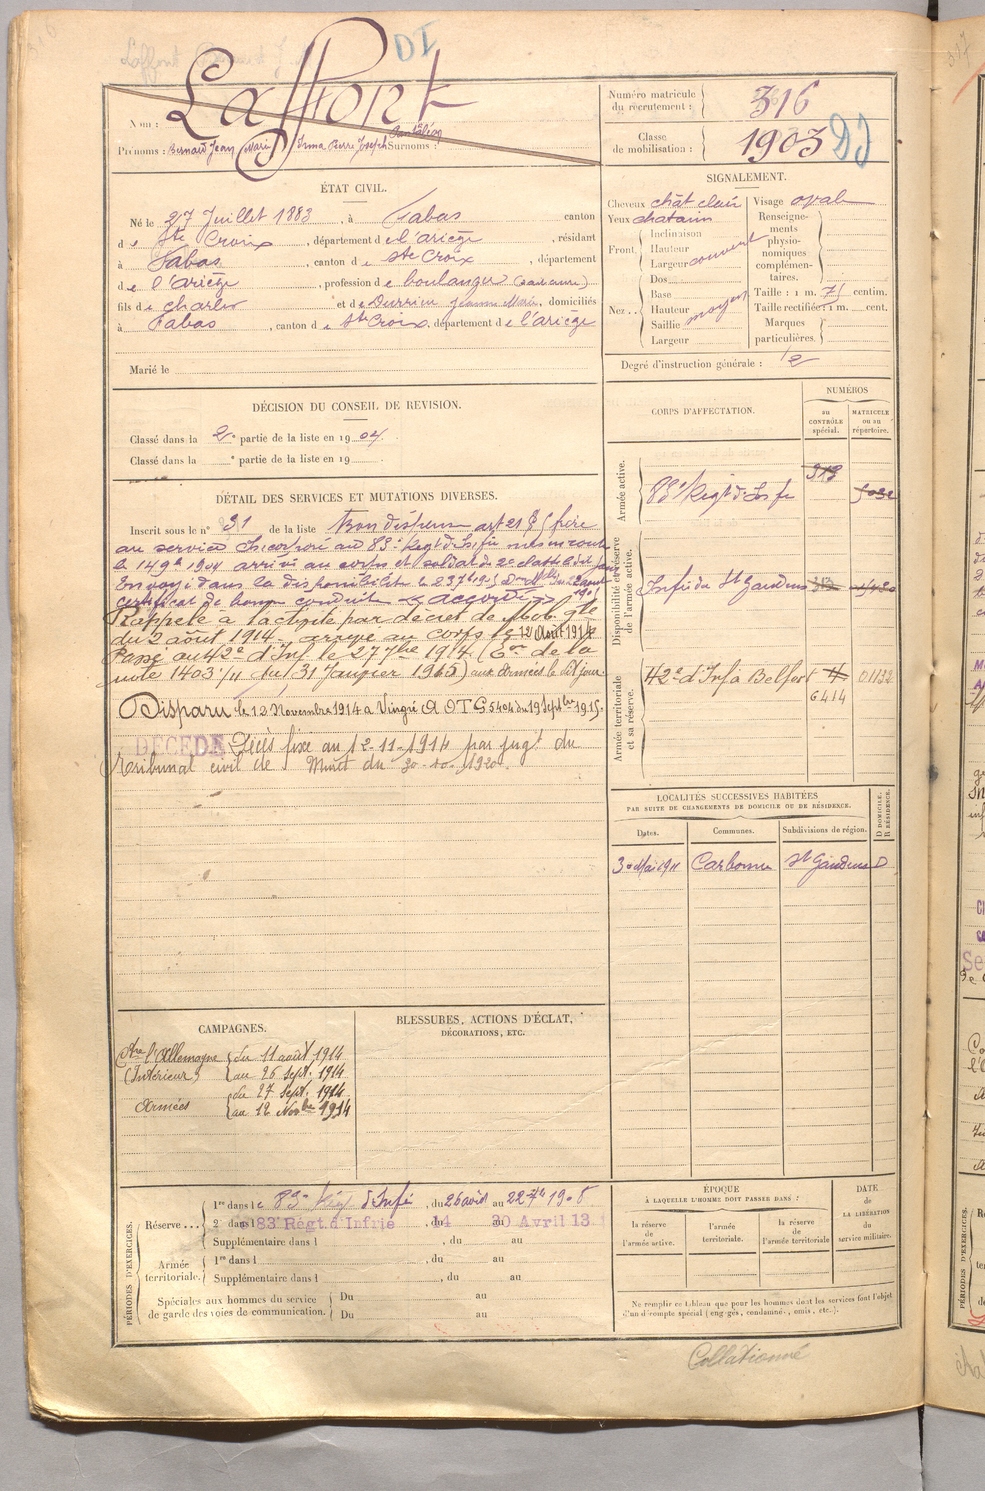 DI
Nom : Laffont
Prénoms : Bernard Jean Marie Irma Pierre Joseph Pantaléon Surnoms :
Numéro matricule du recrutement : 316
Classe de mobilisation : 1903 DI
ÉTAT CIVIL.
Né le 27 Juillet 1883, à Fabas canton
de Ste Croix, département de l'ariège, résidant
à Fabas, canton de Ste Croix, département
de l'ariège, profession de boulanger
fils de Charles et de Durrieu Jeanne Marie, domiciliés
à Fabas, canton de Ste Croix, département de l'ariège
Marié le
SIGNALEMENT.
Cheveux chât clair Visage oval
Yeux chatain
Front Inclinaison
Hauteur
Largeur couvert
Nez.. Dos
Base
Hauteur moyen
Saillie
Largeur
Renseignements physionomiques complémentaires.
Taille : 1 m. 71 centim.
Taille rectifiée : 1 m. cent.
Marques particulières.
Degré d'instruction générale : 2
DÉCISION DU CONSEIL DE REVISION.
Classé dans la 2e partie de la liste en 1904.
Classé dans la e partie de la liste en 19
DÉTAIL DES SERVICES ET MUTATIONS DIVERSES.
Inscrit sous le n° 31 de la liste Bon dispensé art 21 frère
au service Incorporé au 83e Regt d'Infie mis en route
le 14 9bre 1904 arrivé au corps et soldat de 2e classe le dit jour
Envoyé dans la disponibilité le 23 7bre 1905
certificat de bonne conduite « accordé »
Rappelé à l'activité par décret de Mob. gle
du 2 août 1914 arrivé au corps le 12 Août 1914
Passé au 42e d'Inf le 27 7bre 1914 (Eon de la
note 1403 1/11 du 31 Janvier 1915) aux armées le dit jour.
Disparu le 12 Novembre 1914 à Vingré A OTG. 5404 du 19 Septbre 1915.
DÉCÉDÉ Décès fixé au 12-11-1914 par jugt du
Tribunal civil de Muret du 30-10-1920.
CORPS D'AFFECTATION.
NUMÉROS
au CONTRÔLE spécial.
MATRICULE ou au répertoire.
Armée active.
83e Regt d'Infie 313
Disponibilité et réserve de l'armée active.
Infie du St Gaudens 313
Armée territoriale et sa réserve.
42e d'Inf à Belfort 6414 01132
LOCALITÉS SUCCESSIVES HABITÉES
PAR SUITE DE CHANGEMENTS DE DOMICILE OU DE RÉSIDENCE.
Dates. Communes. Subdivisions de région. D DOMICILE. R RÉSIDENCE.
30 Mai 1911 Carbonne St Gaudens D
CAMPAGNES.
Ctre l'Allemagne du 11 août 1914
(Intérieur) au 26 sept. 1914
Armées du 27 sept. 1914
au 12 Novbre 1914
BLESSURES, ACTIONS D'ÉCLAT,
DÉCORATIONS, ETC.
PÉRIODES D'EXERCICES.
Réserve... 1re dans le 83e Régt d'Infie, du 26 août au 22 7bre 1908
2e dans 83e Régt. d'Infrie, du 14 au 30 Avril 13
Supplémentaire dans l , du au
Armée territoriale. 1re dans l , du au
Supplémentaire dans l , du au
Spéciales aux hommes du service de garde des voies de communication. Du au
Du au
ÉPOQUE
À LAQUELLE L'HOMME DOIT PASSER DANS :
la réserve de l'armée active.
l'armée territoriale.
la réserve de l'armée territoriale
DATE de LA LIBÉRATION du service militaire.
Ne remplir ce tableau que pour les hommes dont les services font l'objet
d'un décompte spécial (engagés, condamnés, omis, etc..).
Collationné